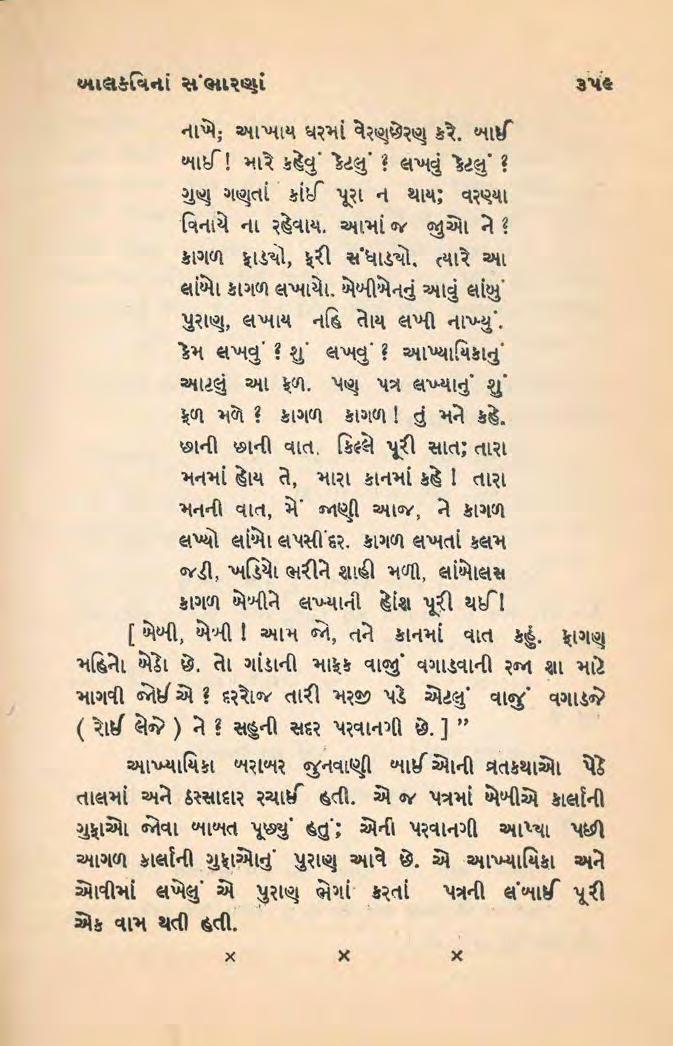 બાલકવિનાં સંભારણાં ૩૫૯
નાખે; આખાય ઘરમાં વેરણછેરણ કરે. બાઈ
બાઈ! મારે કહેવું કેટલું ? લખવું કેટલું ?
ગુણ ગણતાં કાંઈ પૂરા ન થાય; વરણ્યા
વિનાયે ના રહેવાય. આમાં જ જુઓ ને ?
કાગળ ફાડ્યો, ફરી સંધાડ્યો. ત્યારે આ
લાંબો કાગળ લખાયો. બેબીબેનનું આવું લાંબું
પુરાણ, લખાય નહિ તોય લખી નાખ્યું.
કેમ લખવું ? શું લખવું ? આખ્યાયિકાનું
આટલું આ ફળ. પણ પત્ર લખ્યાનું શું
ફળ મળે ? કાગળ કાગળ! તું મને કહે.
છાની છાની વાત. કિલ્લે પૂરી સાત; તારા
મનમાં હોય તે, મારા કાનમાં કહે ! તારા
મનની વાત, મેં જાણી આજ, ને કાગળ
લખ્યો લાંબો લપસીંદર. કાગળ લખતાં કલમ
જડી, ખડિયો ભરીને શાહી મળી, લાંબોલસ
કાગળ બેબીને લખ્યાની હોંશ પૂરી થઈ!
[ બેબી, બેબી ! આમ જો, તને કાનમાં વાત કહું. ફાગણ
મહિનો બેઠો છે. તો ગાંડાની માફક વાજું વગાડવાની રજા શા માટે
માગવી જોઈએ ? દરરોજ તારી મરજી પડે એટલું વાજું વગાડજે
( રોઈ લેજે ) ને ? સહુની સદર પરવાનગી છે. ] ”
આખ્યાયિકા બરાબર જુનવાણી બાઈઓની વ્રતકથાઓ પેઠે
તાલમાં અને ઠસ્સાદાર રચાઈ હતી. એ જ પત્રમાં બેબીએ કાર્લાની
ગુફાઓ જોવા બાબત પૂછ્યું હતું; એની પરવાનગી આપ્યા પછી
આગળ કાર્લાની ગુફાઓનું પુરાણ આવે છે. એ આખ્યાયિકા અને
ઓવીમાં લખેલું એ પુરાણ ભેગાં કરતાં પત્રની લંબાઈ પૂરી
એક વામ થતી હતી.
× × ×